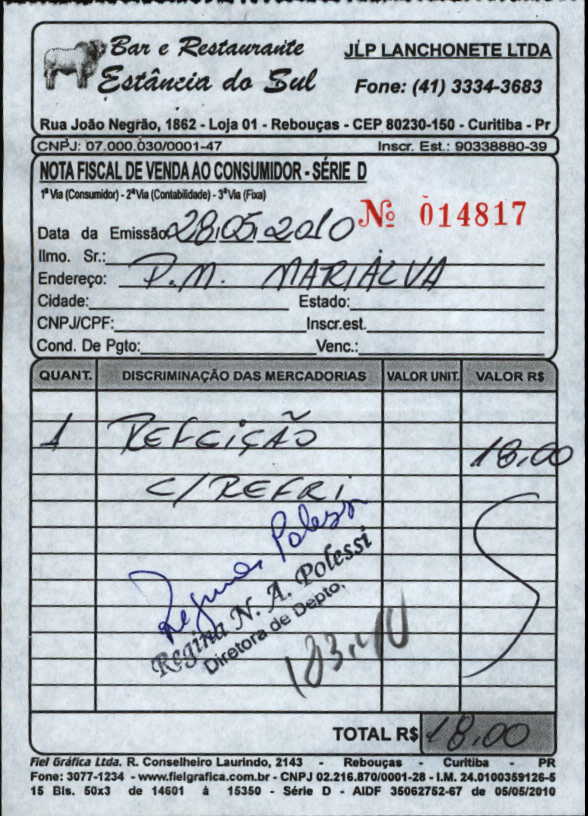 Bar e Restaurante
Estância do Sul
JLP LANCHONETE LTDA
Fone: (41) 3334-3683
Rua João Negrão, 1862 - Loja 01 - Rebouças - CEP 80230-150 - Curitiba - Pr
CNPJ: 07.000.030/0001-47 Inscr. Est.: 90338880-39
NOTA FISCAL DE VENDA AO CONSUMIDOR - SÉRIE D
1ª Via (Consumidor) - 2ª Via (Contabilidade) - 3ª Via (Fixa)
Nº 014817
Data da Emissão 28.05.2010
Ilmo. Sr.:
Endereço: P.M. MARIALVA
Cidade: Estado:
CNPJ/CPF: Inscr.est.
Cond. De Pgto: Venc.:
QUANT. DISCRIMINAÇÃO DAS MERCADORIAS VALOR UNIT. VALOR R$
1 REFEIÇÃO 18,00
C/REFRI
Regina N. A. Polessi
Diretora de Depto.
183,40
TOTAL R$ 18,00
Fiel Gráfica Ltda. R. Conselheiro Laurindo, 2143 - Rebouças - Curitiba - PR
Fone: 3077-1234 - www.fielgrafica.com.br - CNPJ 02.216.870/0001-28 - I.M. 24.0100359126-5
15 Bls. 50x3 de 14601 à 15350 - Série D - AIDF 35062752-67 de 05/05/2010